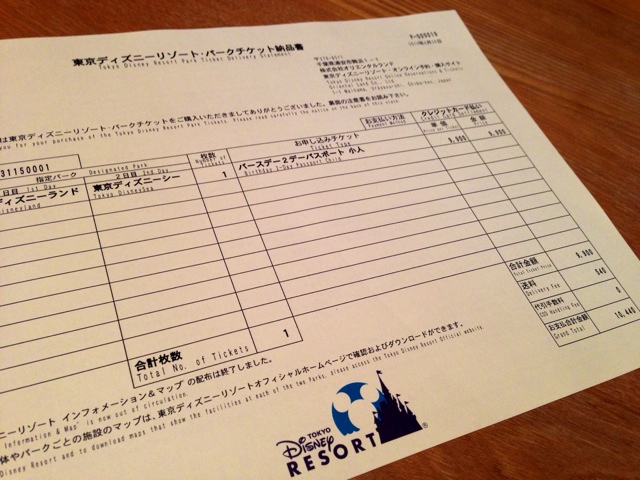 東京ディズニーリゾート・パークチケット納品書
Tokyo Disney Resort Park Ticket Delivery Statement
千葉県浦安市舞浜1-1
株式会社オリエンタルランド
東京ディズニーリゾート・オンライン予約・購入サイト
Tokyo Disney Resort Online Reservations & Tickets
Oriental Land Co., Ltd.
は東京ディズニーリゾート・パークチケットをご購入いただきましてありがとうございました。裏面の注意書をお読み下さい。
you for your purchase of the Tokyo Disney Resort Park Tickets. Please read carefully the notice on the back of this
お支払い方法 クレジットカード払い
Payment Method
31150001
指定パーク Designated Park
枚数
お申し込みチケット
Ticket Type
単価
金額
Price
日目 1st Day
2日目 2nd Day
ディズニーランド
Disneyland
東京ディズニーシー
Tokyo DisneySea
1
バースデー2デーパスポート 小人
Birthday 2-Day Passport Child
9,900
9,900
合計枚数
Total No. of Tickets
1
合計金額
Total Ticket Price
9,900
送料
Delivery Fee
540
代引手数料
COD Handling Fee
0
お支払合計金額
Grand Total
10,440
ニーリゾート インフォメーション&マップ の配布は終了しました。
Information & Map" is now out of circulation.
体やパークごとの施設のマップは、東京ディズニーリゾートオフィシャルホームページで確認およびダウンロードができます。
Disney Resort and to download maps that show the facilities at each of the two Parks, please access the Tokyo Disney Resort Official website.
TOKYO
Disney
RESORT®